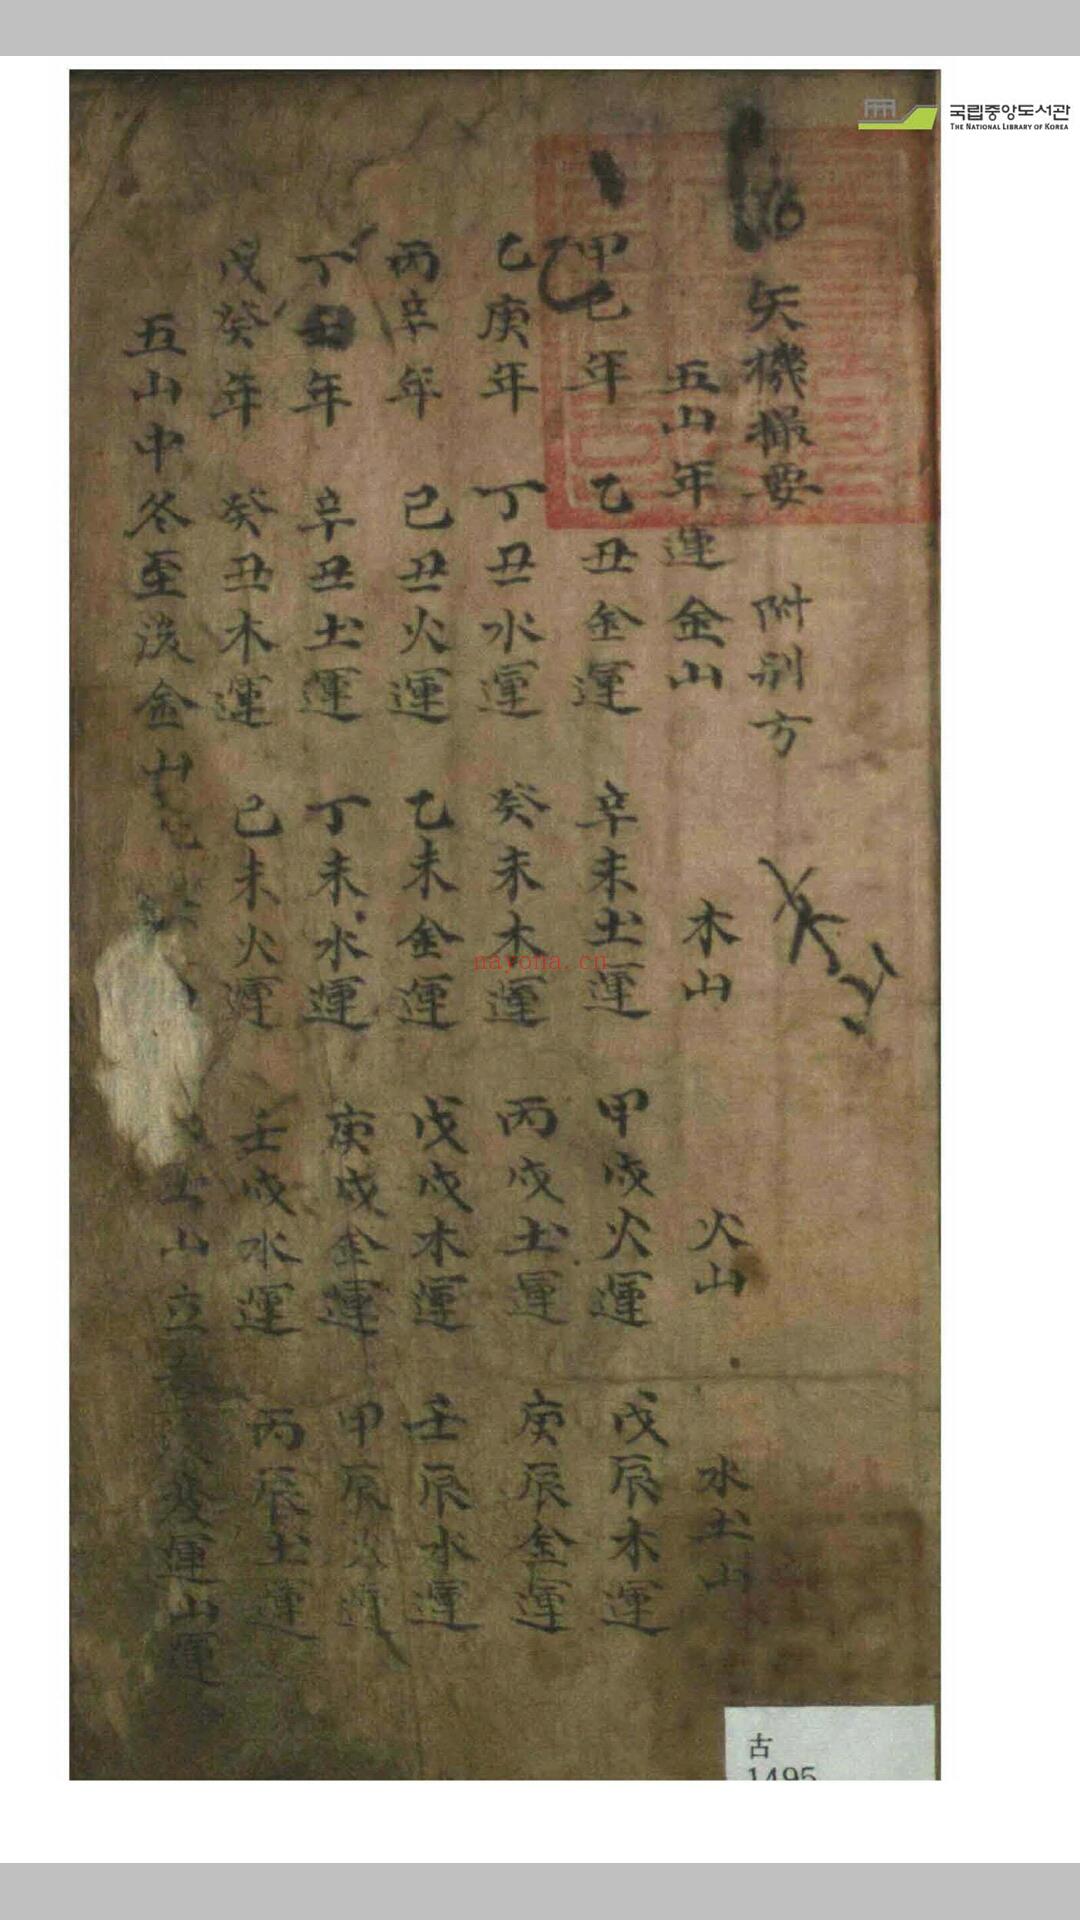 국립중앙도서관
THE NATIONAL LIBRARY OF KOREA
矢機撮要 附别方
五山年運 金山 木山 火山 水土山
甲己年 乙丑金運 辛未土運 甲戌火運 戊辰木運
乙庚年 丁丑水運 癸未木運 丙戌土運 庚辰金運
丙辛年 己丑火運 乙未金運 戊戌木運 壬辰水運
丁壬年 辛丑土運 丁未水運 庚戌金運 甲辰火運
戊癸年 癸丑木運 己未火運 壬戌水運 丙辰土運
五山中冬至後金山 土山立春後變運山運
nayona.cn
古
1495